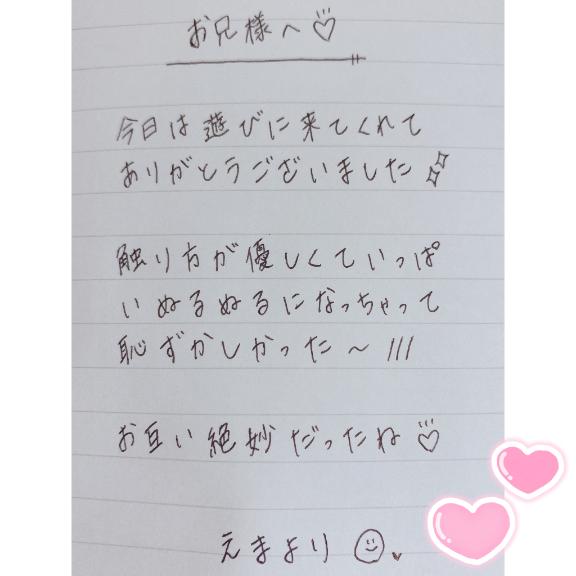 お兄様へ♡
今日は遊びに来てくれて
ありがとうございました
触り方が優しくていっぱ
いぬるぬるになっちゃって
恥ずかしかった〜///
お互い絶妙だったね♡
えまより